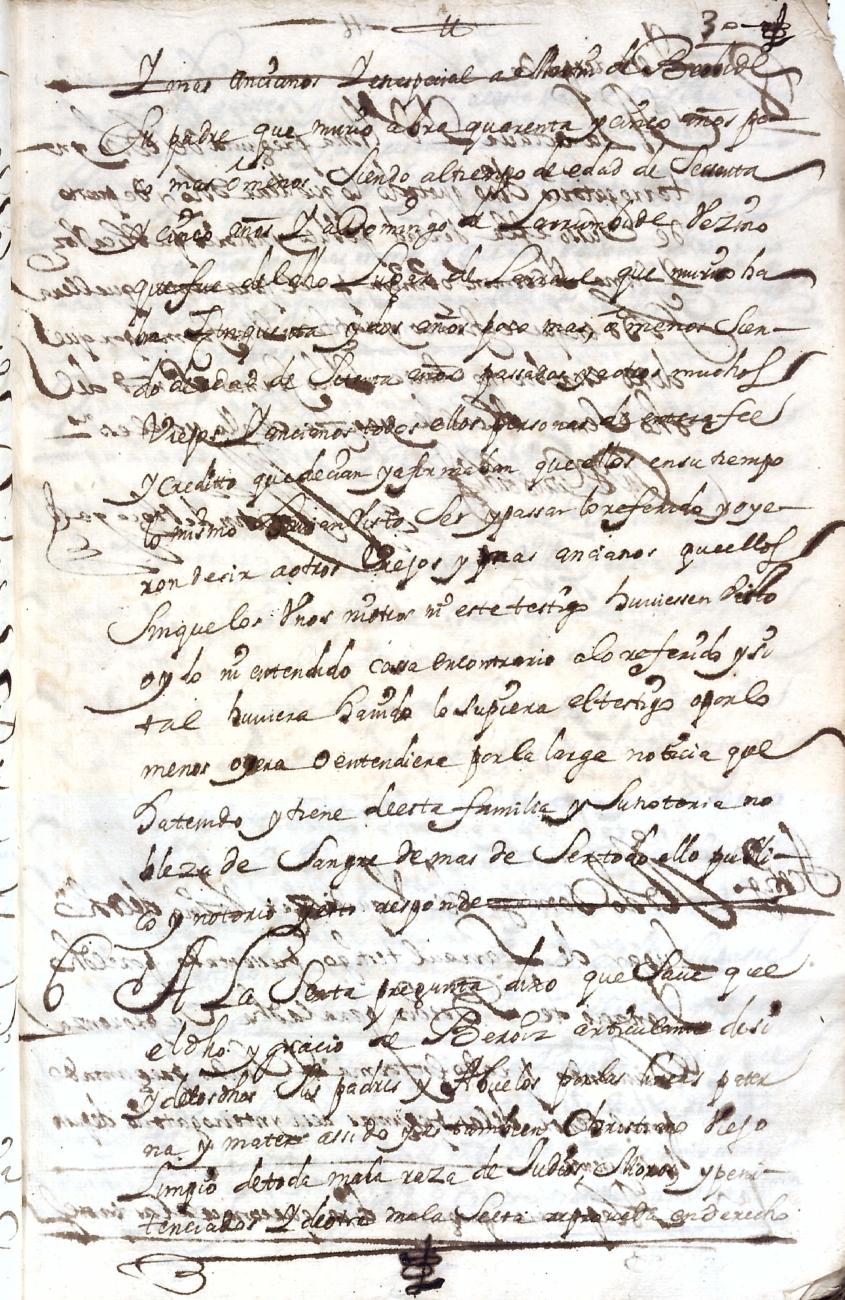 3
Y mas ancianos Y en especial a Martin de
Su padre que murio abra quarenta y cinco años po
co mas o menos Siendo al tiempo de edad de Setenta
Y cinco años Y a Domingo de Larrumbide Vezino
que fue del dho Lugar de Larraul que murio ha
bra Zinquenta y dos años poco mas o menos Sien
do de edad de Setenta años passados y a otros muchos
Viejos Y ancianos todos ellos personas de entera fee
y Creditto que decian y afirmaban que ellos en su tiempo
lo mismo havian Visto Ser y passar lo referido y oye
ron desir a otros Viejos y mas ancianos que ellos
Sin que los Vnos ni otros ni este testigo huviessen Visto
oydo ni entendido cossa en contrario a lo referido y si
tal huviera havido lo supiera el testigo o por lo
menos oyera o entendiera por la larga noticia que
ha tenido y tiene de esta familia y Su notoria no
bleza de Sangre de mas de Ser todo ello publi
co y notorio y esto responde
A La Sexta pregunta dixo que Save que
el dho ygnacio de Beroiz articulante de si
y de los dhos Sus padres y Abuelos por las lineas pater
na y mater assido y es tambien Christiano Viejo
Limpio de toda mala raza de Judios, Moros y peni
tenciados Y de otra mala Secta reprovada en derecho